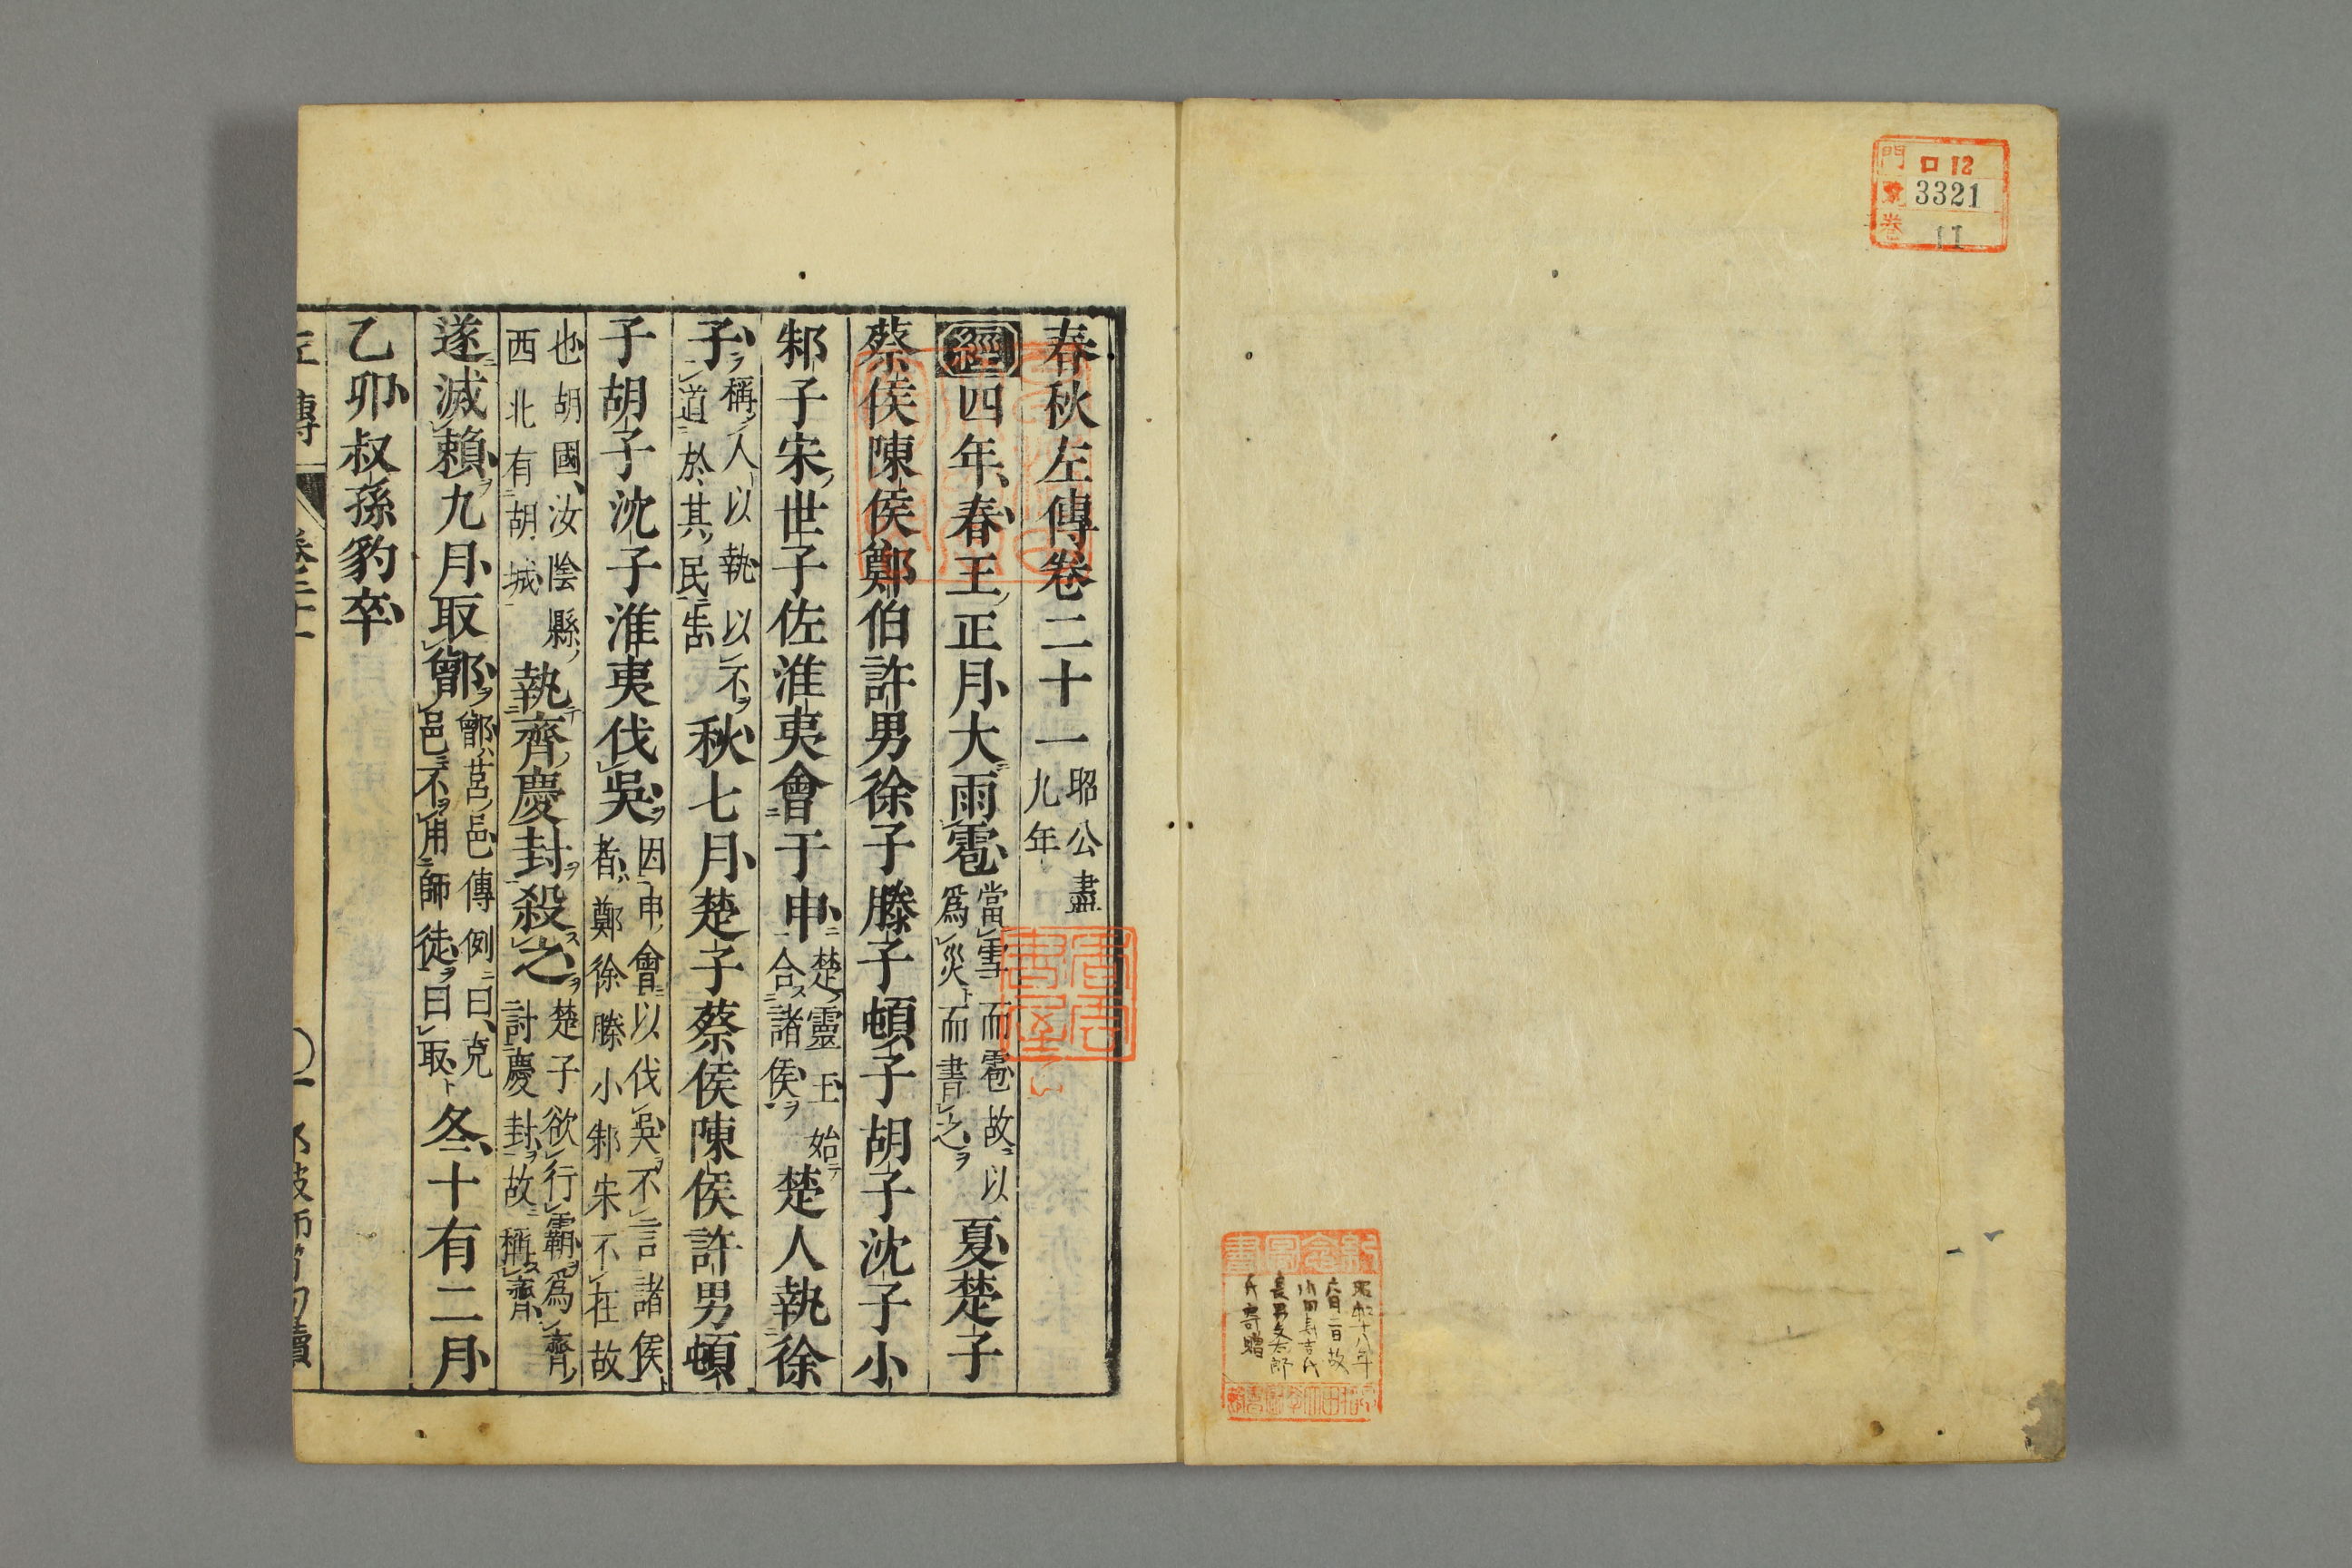 門 口12
號 3321
卷 11
昭和十八年
六月二日故
小田長吉氏
長男文太郎
氏寄贈
春秋左傳卷二十一 昭公盡九年
經四年春王正月大雨雹 當雪而雹故以爲災而書之 夏楚子
蔡侯陳侯鄭伯許男徐子滕子頓子胡子沈子小
邾子宋世子佐淮夷會于申 楚靈王始合諸侯 楚人執徐
子 稱人以執以不道於其民告 秋七月楚子蔡侯陳侯許男頓
子胡子沈子淮夷伐吳 因申會以伐吳不言諸侯者鄭徐滕小邾宋不在故
也胡國汝陰縣西北有胡城 執齊慶封殺之 楚子欲行霸爲齊討慶封故稱齊
遂滅賴九月取鄫 鄫莒邑傳例曰克邑不用師徒曰取 冬十有二月
乙卯叔孫豹卒
左傳 卷二十一 一